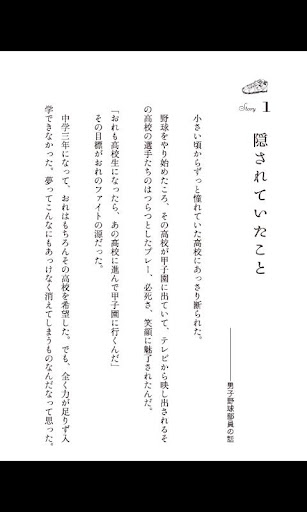 Story 1
隠されていたこと
男子野球部員の話
小さい頃からずっと憧れていた高校にあっさり断られた。
野球をやり始めたころ、その高校が甲子園に出ていて、テレビから映し出されるそ
の高校の選手たちのはつらつとしたプレー、必死さ、笑顔に魅了されたんだ。
「おれも高校生になったら、あの高校に進んで甲子園に行くんだ」
その目標がおれのファイトの源だった。
中学三年になって、おれはもちろんその高校を希望した。でも、全く力が足りず入
学できなかった。夢ってこんなにもあっけなく消えてしまうものなんだなって思った。